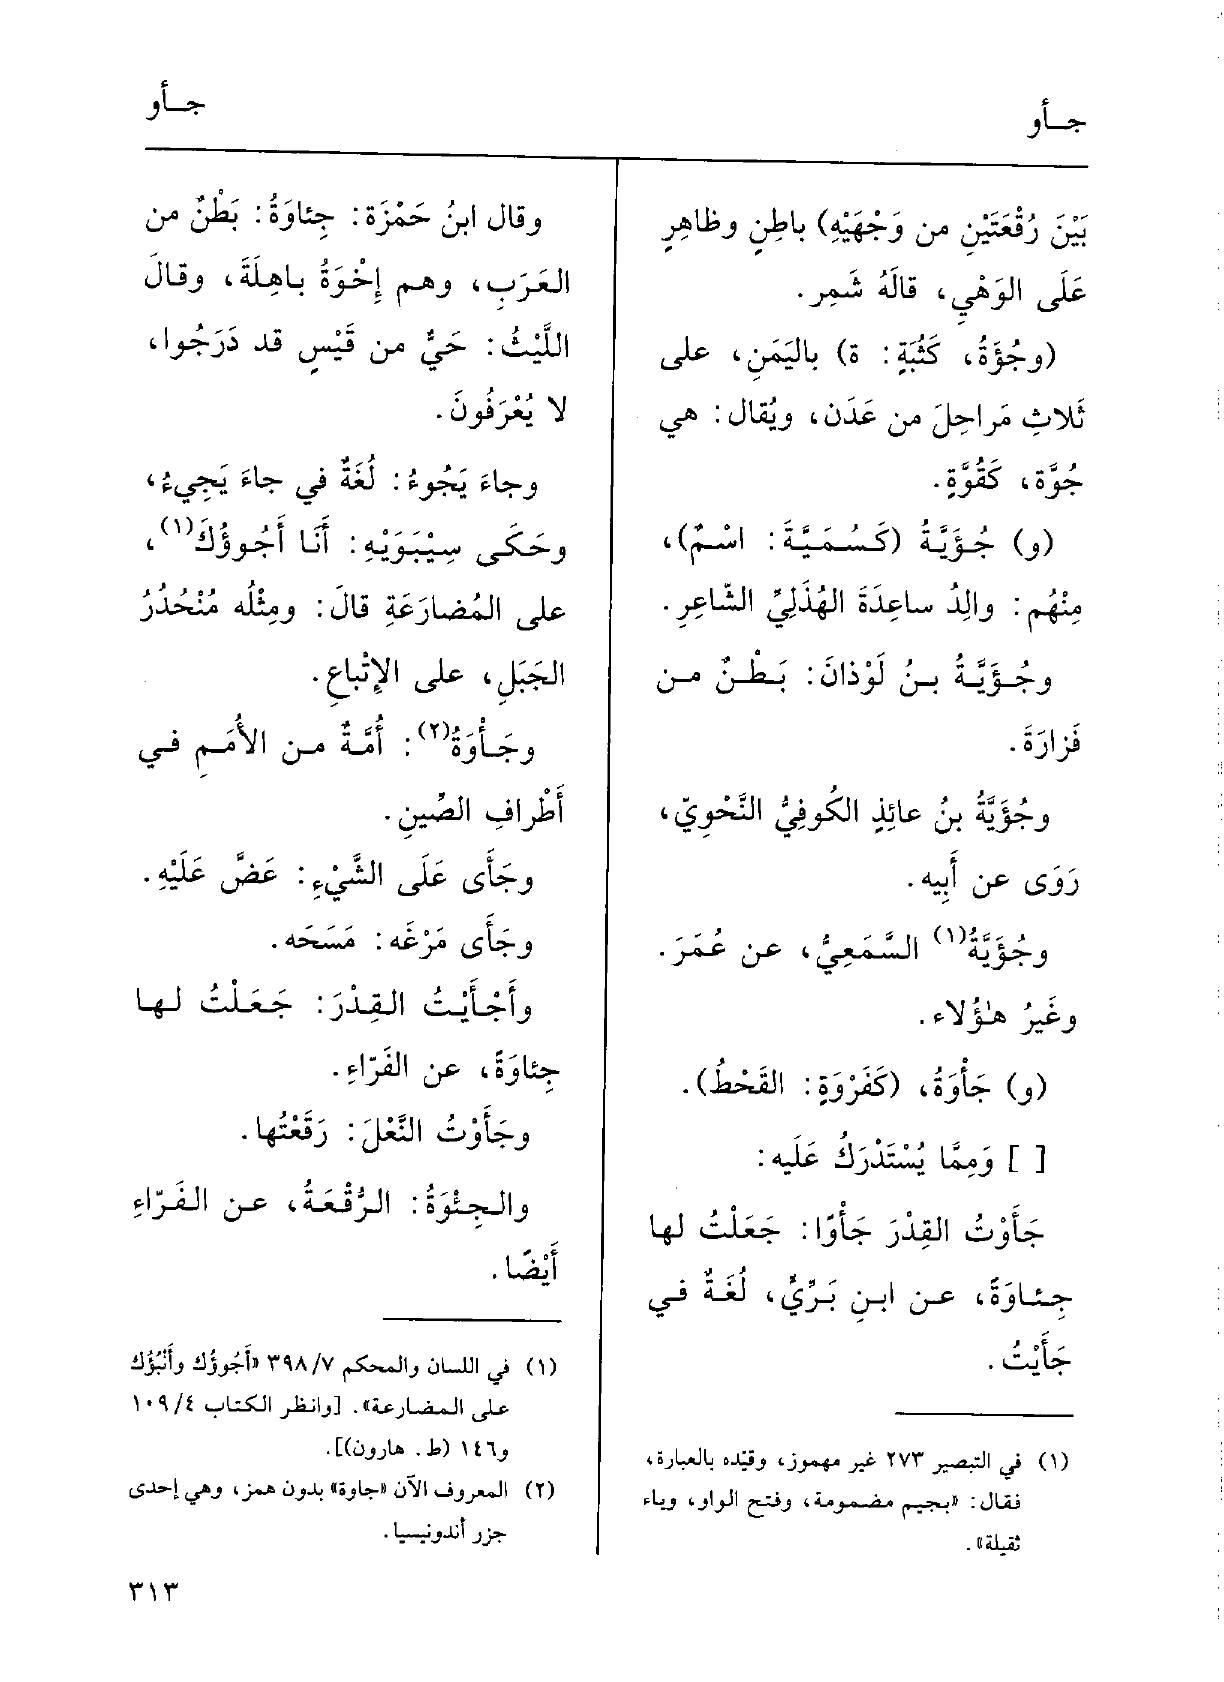 جـأو
جـأو
بَيْنَ رُقْعَتَيْنِ من وَجْهَيْهِ) باطِنٍ وظاهِرٍ
عَلَى الوَهْيِ، قالَهُ شَمِر.
(وجُؤَةُ، كَثُبَةٍ: ة) باليَمَنِ، على
ثَلاثِ مَراحِلَ من عَدَن، ويُقال: هي
جُوَّة، كَقُوَّةٍ.
(و) جُـؤَيَّـةُ (كَـسُـمَـيَّـةَ: اسْـمٌ)،
مِنْهُم: والِدُ ساعِدَةَ الهُذَلِيِّ الشّاعِرِ.
وجُـؤَيَّـةُ بـنُ لَوْذانَ: بَـطْـنٌ مـن
فَزارَةَ.
وجُؤَيَّةُ بنُ عائِذٍ الكُوفِيُّ النَّحْوِيّ،
رَوَى عن أَبِيه.
وجُؤَيَّةُ(١) السَّمَعِيُّ، عن عُمَرَ.
وغَيرُ هٰؤُلاء.
(و) جَأْوَةُ، (كَفَرْوَةٍ: القَحْطُ).
[ ] وَمِمَّا يُسْتَدْرَكُ عَلَيه:
جَأَوْتُ القِدْرَ جَأْوًا: جَعَلْتُ لها
جِـئـاوَةً، عـن ابـنِ بَـرِّيٍّ، لُغَـةٌ فـي
جَأَيْتُ.
(١) في التبصير ٢٧٣ غير مهموز، وقيّده بالعبارة،
فقال: «بجيم مضمومة، وفتح الواو، وياء
ثقيلة».
وقال ابنُ حَمْزَة: جِئاوَةُ: بَطْنٌ من
العَرَبِ، وهـم إِخْوَةُ بـاهِلَةَ، وقـالَ
اللَّيْثُ: حَيٌّ من قَيْسٍ قد دَرَجُوا،
لا يُعْرَفُونَ.
وجاءَ يَجُوءُ: لُغَةٌ في جاءَ يَجِيءُ،
وحَكَى سِيْبَوَيْهِ: أَنَا أَجُوؤُكَ(١)،
على المُضارَعَةِ قالَ: ومِثْلُه مُنْحُدُرُ
الجَبَلِ، على الإِتْباعِ.
وجَـأْوَةُ(٢): أُمَّـةٌ مـن الأُمَـمِ فـي
أَطْرافِ الصِّينِ.
وجَأَى عَلَى الشَّيْءِ: عَضَّ عَلَيْهِ.
وجَأَى مَرْغَه: مَسَحَه.
وأَجْأَيْتُ القِدْرَ: جَـعَـلْتُ لـهـا
جِئاوَةً، عن الفَرّاءِ.
وجَأَوْتُ النَّعْلَ: رَقَعْتُها.
والـجِئْوَةُ: الـرُّقْـعَـةُ، عـن الفَـرّاءِ
أَيْضًا.
(١) في اللسان والمحكم ٣٩٨/٧ «أَجُوؤُك وأُنْبُؤُك
على المضارعة». [وانظر الكتاب ١٠٩/٤
و١٤٦ (ط. هارون)].
(٢) المعروف الآن «جاوة» بدون همز، وهي إحدى
جزر أندونيسيا.
٣١٣